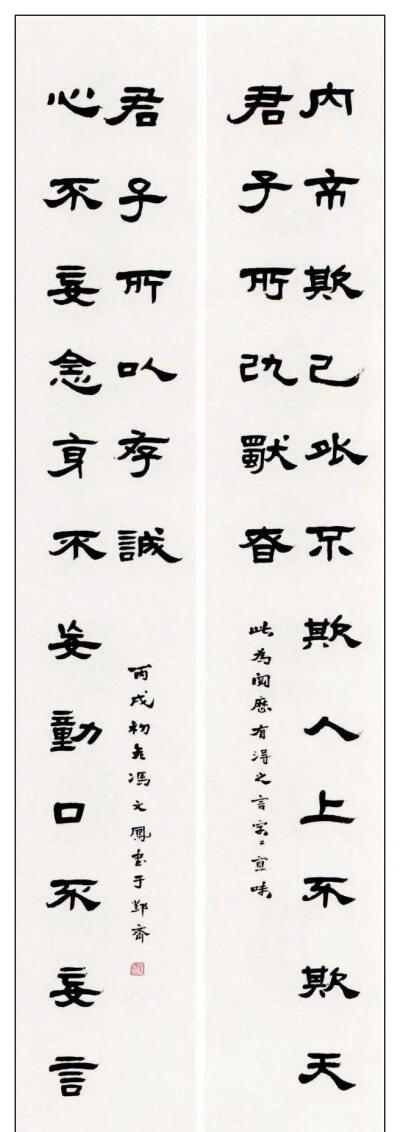 內不欺己外不欺人上不欺天
君子所以獨昚
此為閱歷有得之言字〻宜味
心不妄念身不妄動口不妄言
君子所以存誠
丙戌初冬馮文鳳書于齊